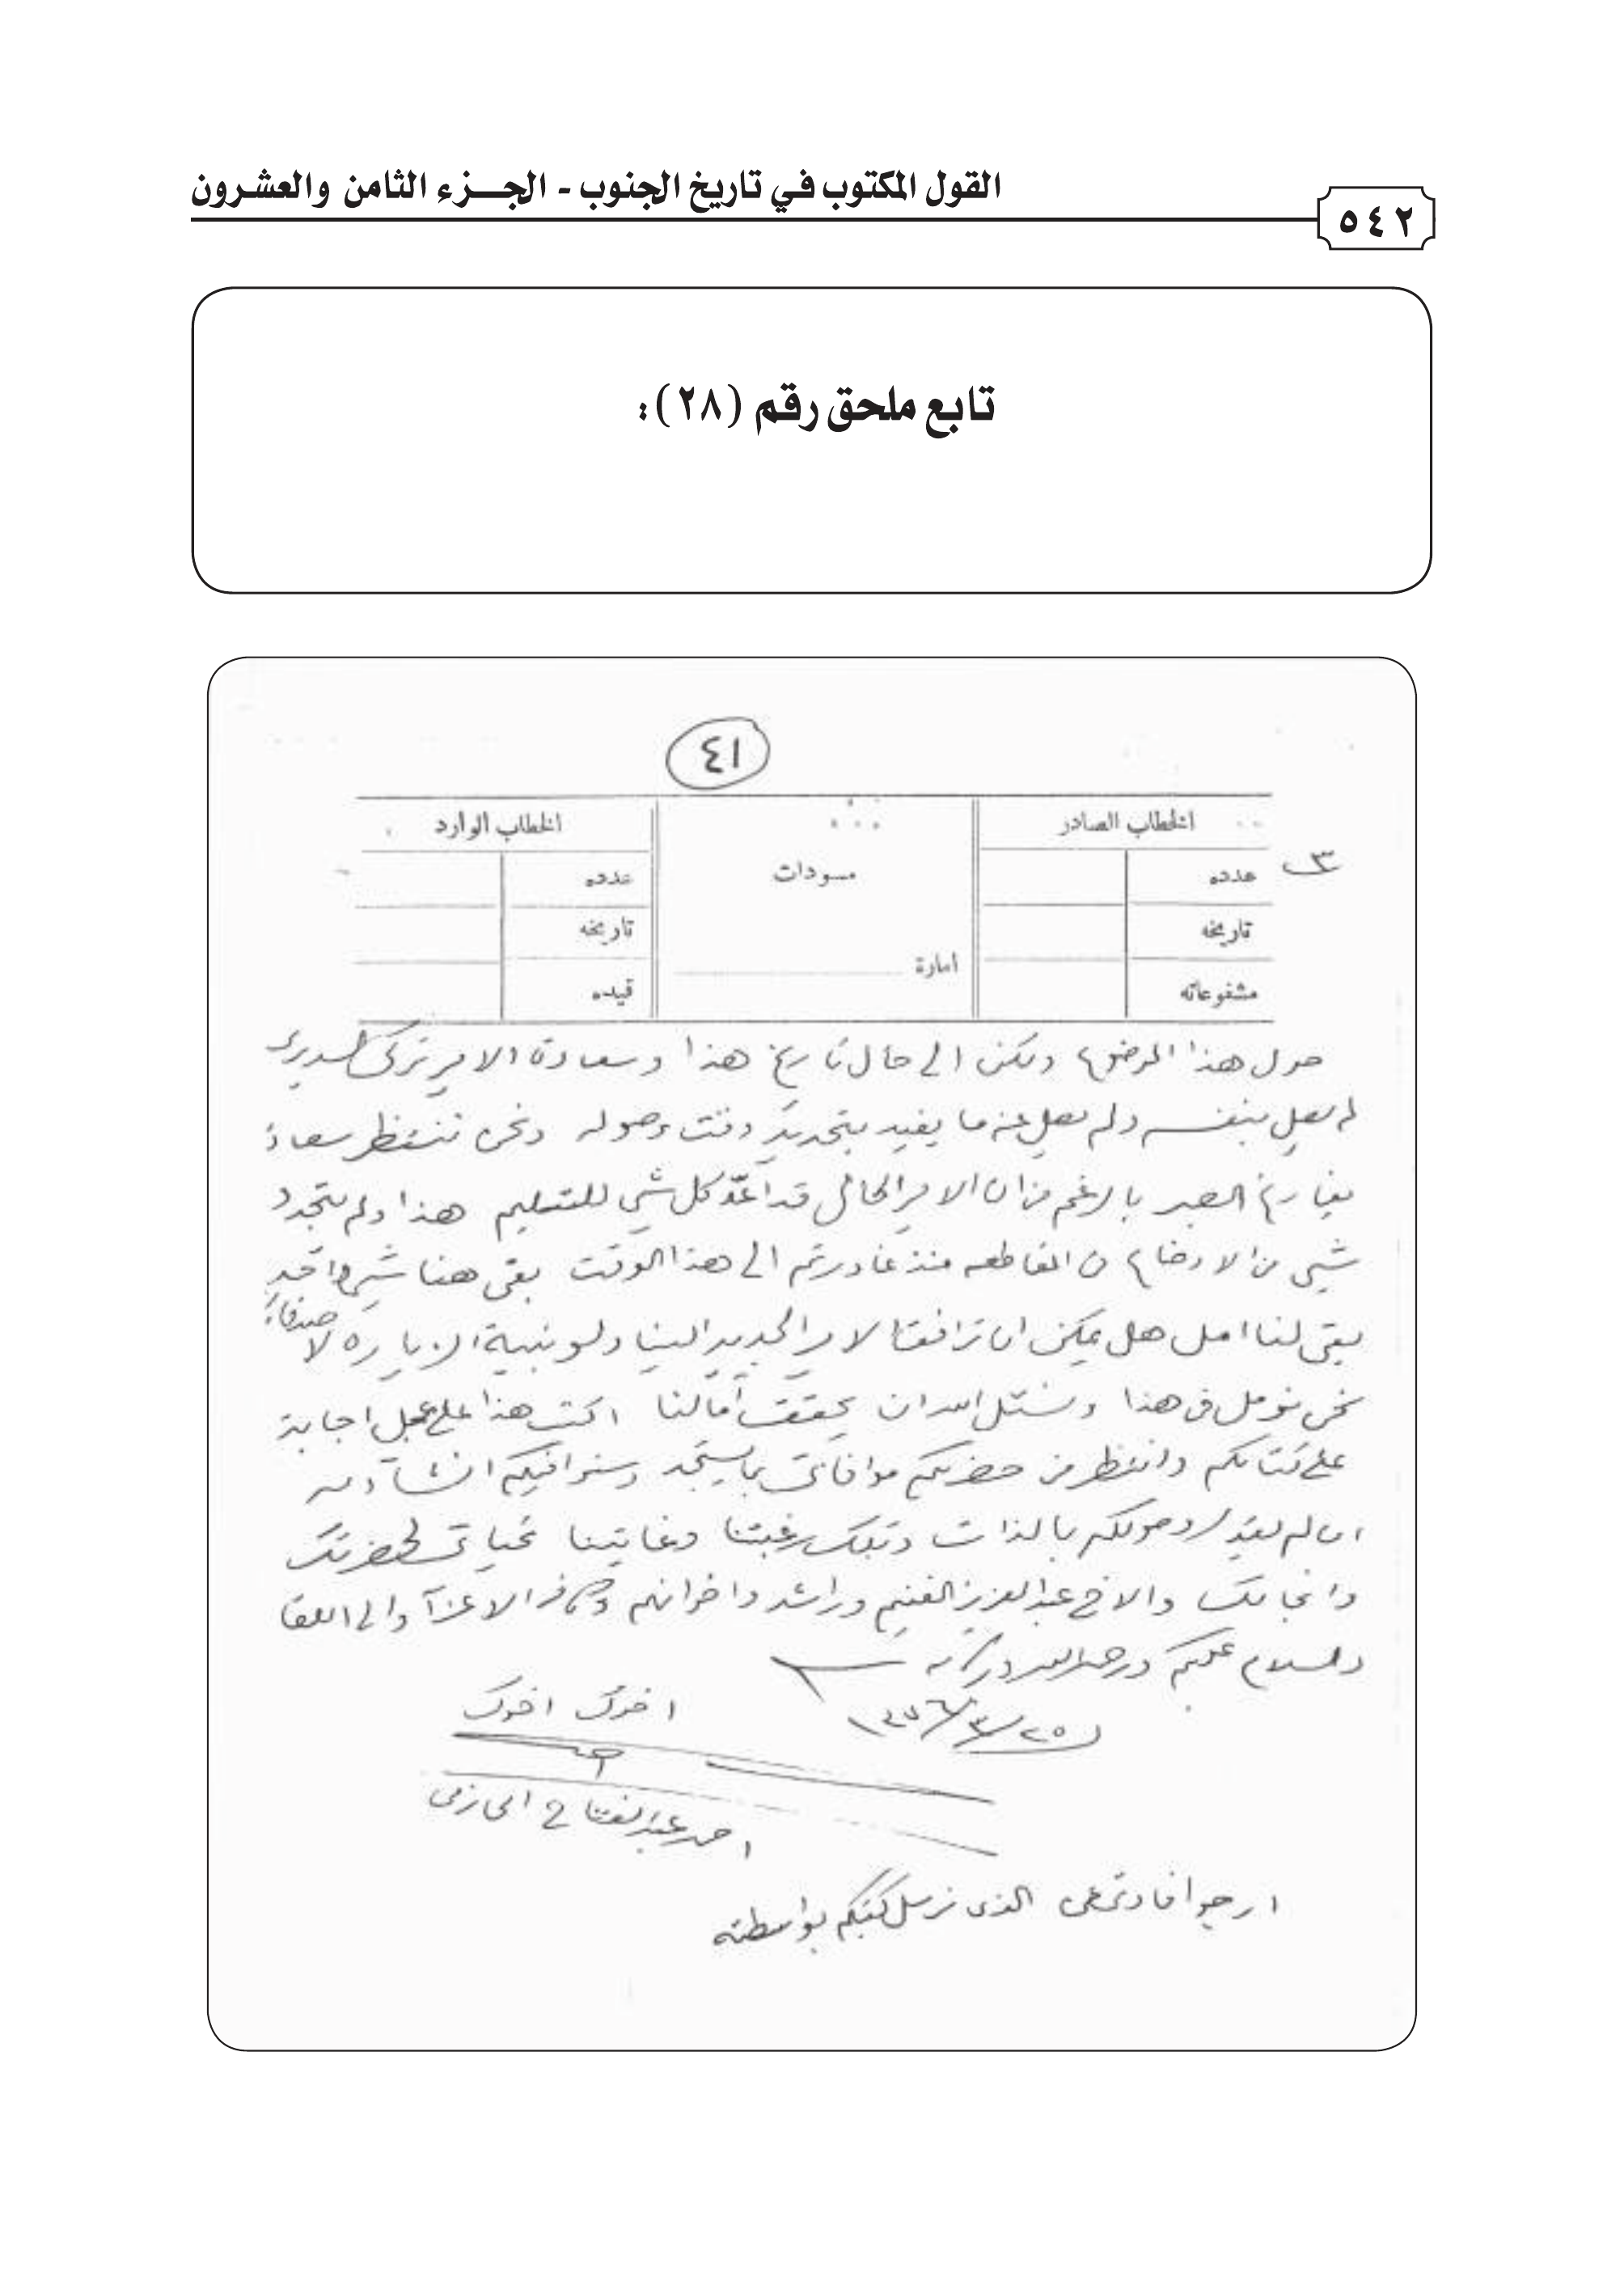 القول المكتوب في تاريخ الجنوب - الجزء الثامن والعشرون
٥٤٢
تابع ملحق رقم (٢٨):
٤١
٣
الخطاب الصادر
عدده
تاريخه
مشفوعاته
مسودات
امارة
الخطاب الوارد
عدده
تاريخه
قيده
حول هذا الموضوع ولكن الى حال تاريخ هذا وسعادة الامير تركي السديري
لم يصل بنفسه ولم يصل عنه ما يفيد بتحديد وقت وصوله ونحن ننتظر سعادة
بفارغ الصبر بالرغم من ان الامير الحالي قد اعد كل شي للتسليم هذا ولم يتجدد
شيي من الاوضاع في المقاطعه منذ غادرتم الى هذا الوقت بقي هنا شي واحد
بقي لنا امل هل يمكن ان ترافقا الامير الجديد الينا ولو بنية الزياره لا
نحن نومل في هذا ونسئل الله ان يحقق آمالنا اكتب هذا على عجل اجابة
على كتابكم وانتظر من حضرتكم موافاتي بما يستجد وسنوافيكم انشآ الله
ان لم وصولكم بالذات وتلك رغبتنا وغايتنا تحياتي لحضرتك
وانجالك والاخ عبدالعزيز الغنيم وراشد واخوانهم الاعزآ والى اللقا
والسلام عليكم ورحمة الله وبركاته
٢٥/٣/١٣٧٦
اخوك اخوك
احمد عبدالفتاح الحازمي
ارجوا افادتي عن الذي نرسل كتبكم بواسطته